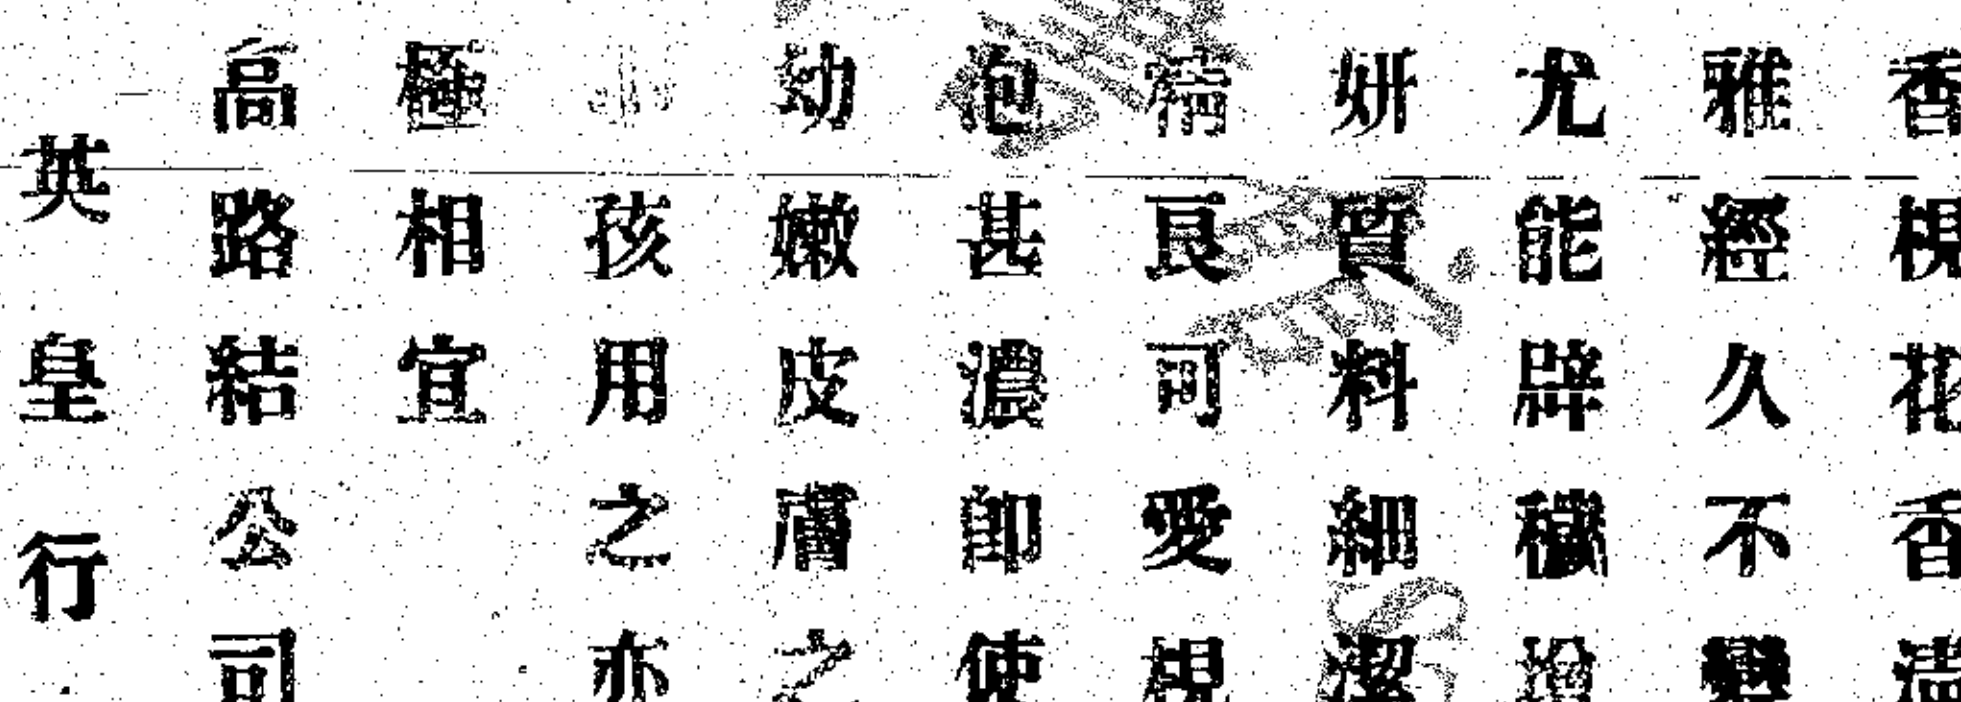 香梘花香清
雅經久不變
尤能辟穢增
妍質料細潔
精良可愛梘
泡甚濃卽使
幼嫩皮膚之
小孩用之亦
極相宜
高路結公司
英皇行